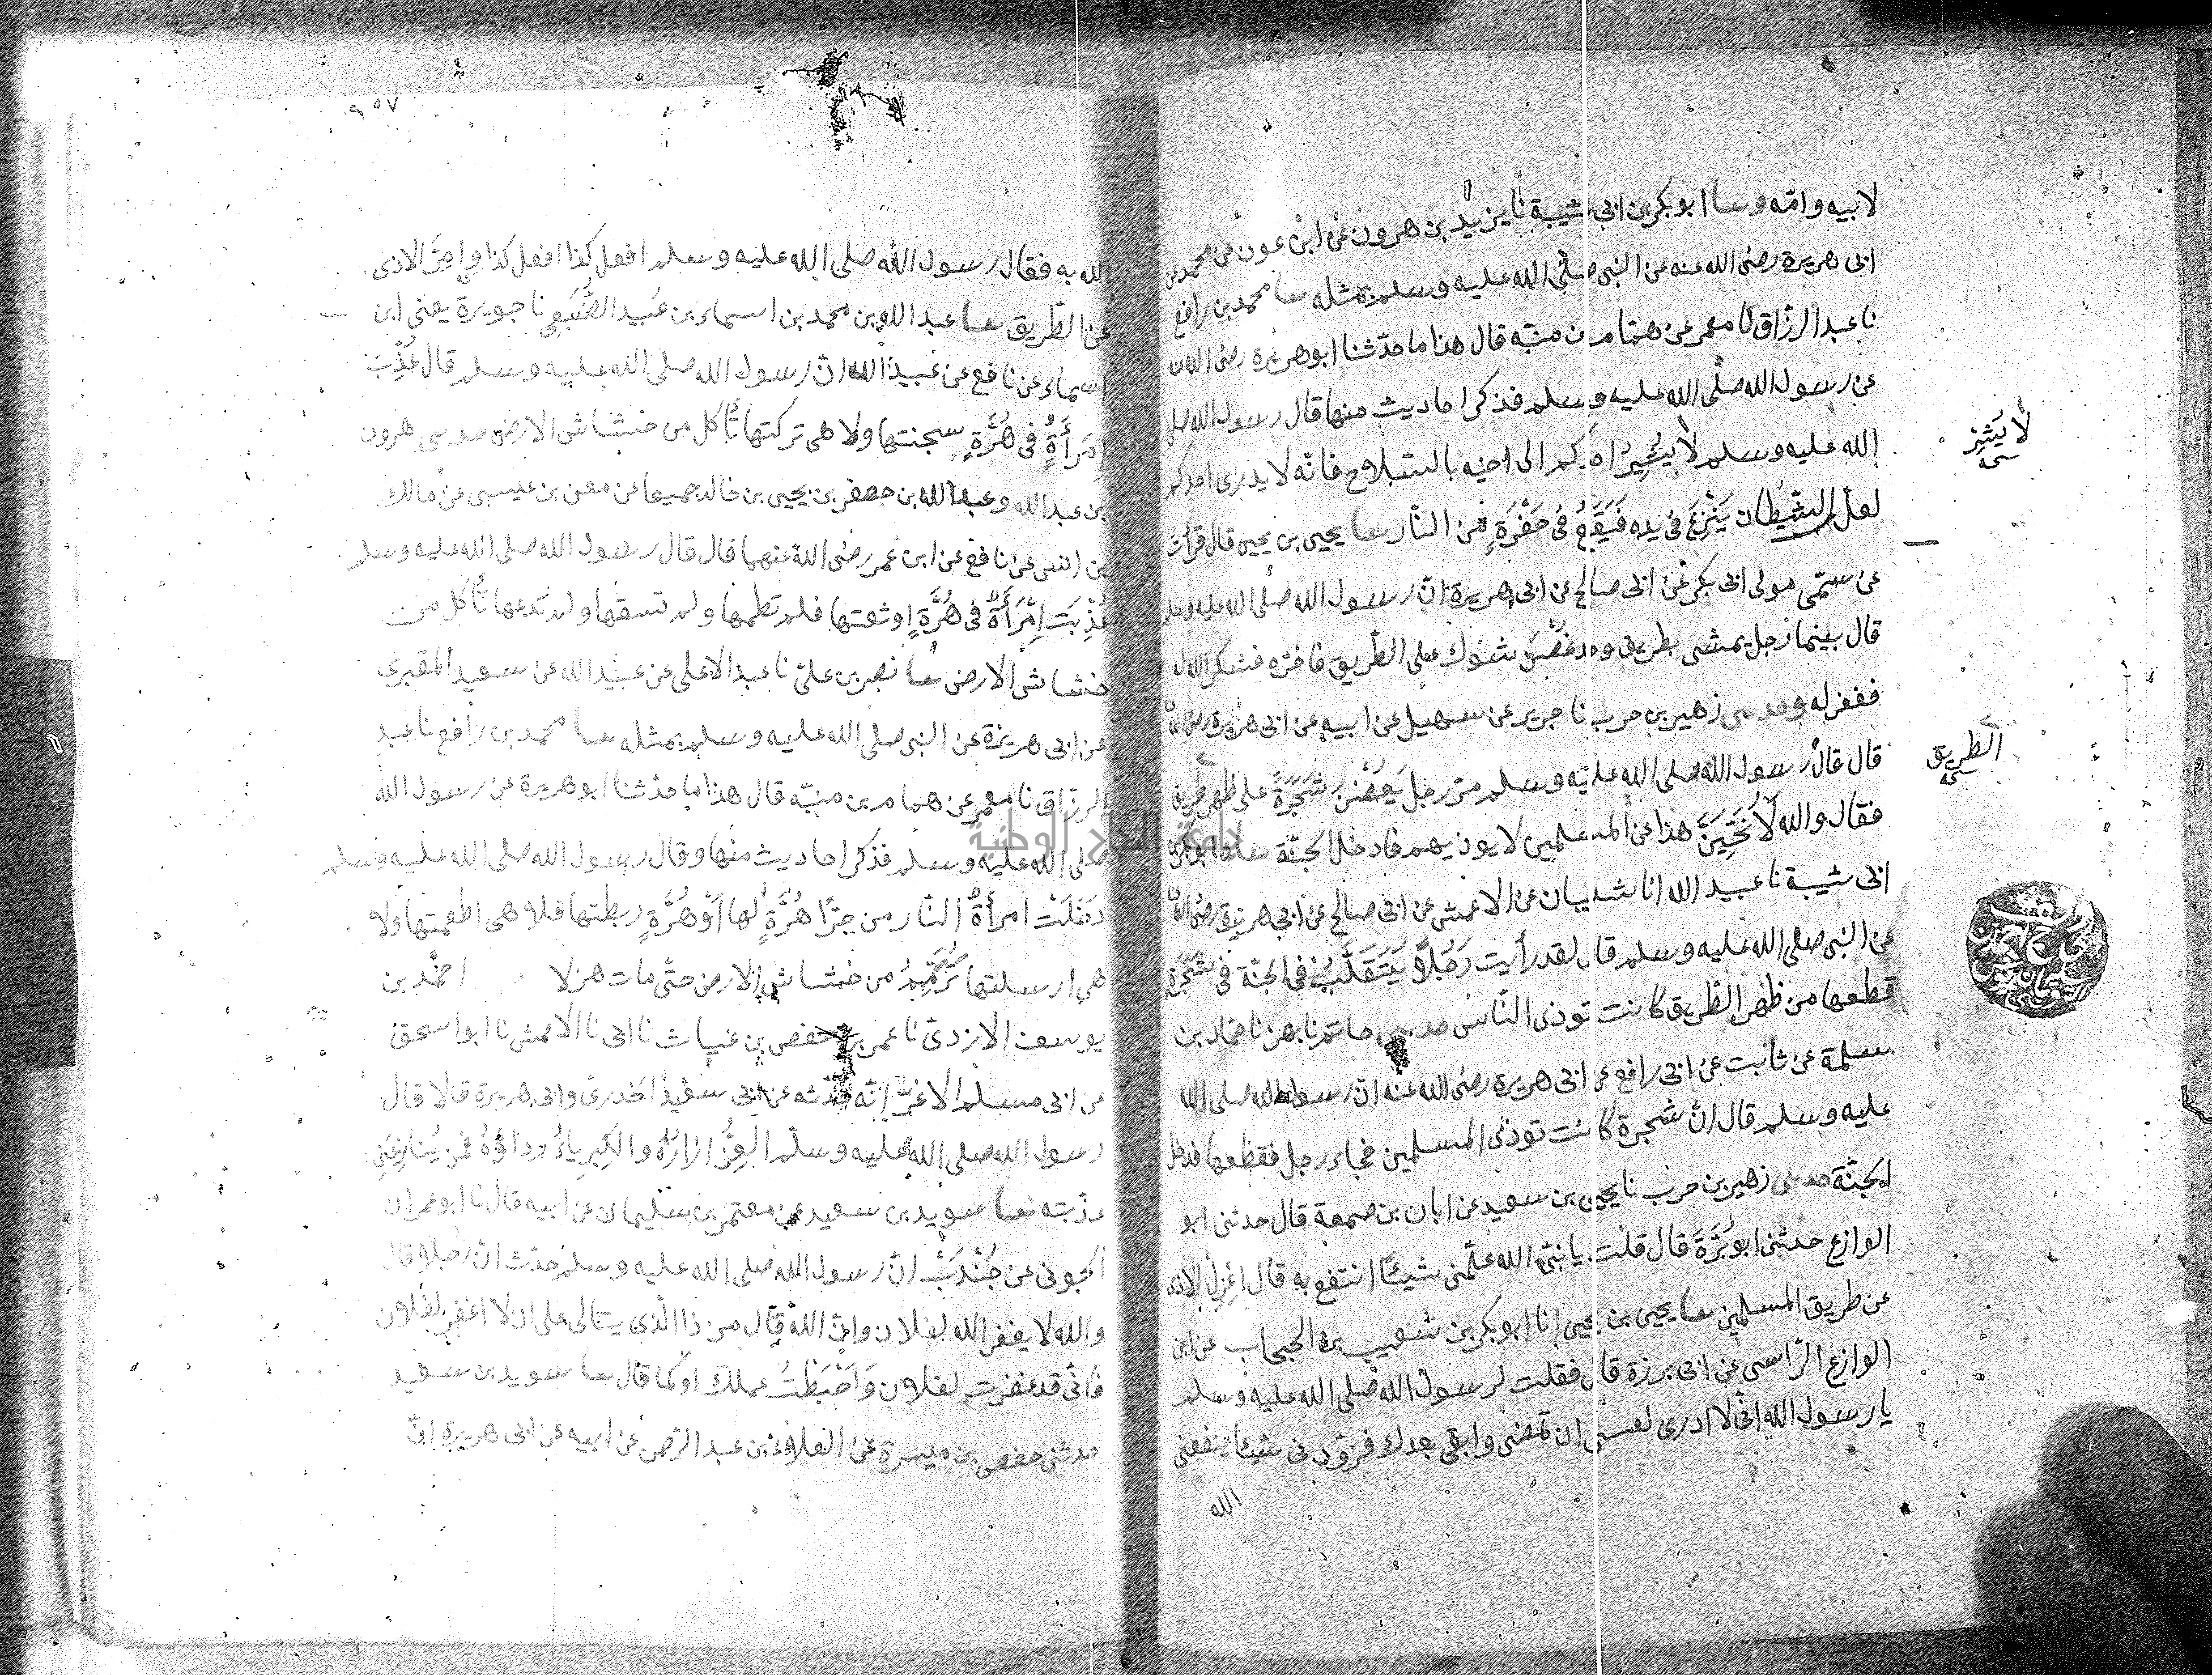 لابيه وامّه وحدثنا ابوبكر بن ابى شيبة نا يزيد بن هرون عن ابن عون عن محمد عن
ابى هريرة رضى الله عنه عن النبى صلى الله عليه وسلم بمثله حدثنا محمد بن رافع
نا عبد الرزّاق نا معمر عن همّام بن منبّه قال هذا ما حدّثنا ابو هريرة رضى الله عنه
عن رسول الله صلّى الله عليه وسلم فذكر احاديث منها قال رسول الله صلى
الله عليه وسلم لا يُشِيرُ احدكم الى اخيه بالسّلاح فانّه لا يدرى احدكم
لعلّ الشيطان يَنْزِعَ فى يده فَيَقَعُ فى حُفْرَةٍ من النّار حدثنا يحيى بن يحيى قال قرأت
عن سمّى مولى ابى بكر عن ابى صالح عن ابى هريرة انّ رسول الله صلى الله عليه وسلم
قال بينما رجل يمشى بطريق وجد غُصْنَ شوك على الطّريق فاخّره فشكر الله له
فغفر له وحدثنى زهير بن حرب نا جرير عن سهيل عن ابيه عن ابى هريرة رضى الله
قال قال رسول الله صلى الله عليه وسلم مرّ رجل بِغُصْنِ شَجَرَةً على ظهر طريق
فقال والله لَاُنَحِّيَنَّ هذا عن المسلمين لا يوذيهم فادخل الجنّة حدثناه ابوبكر بن
ابى شيبة نا عبيد الله انا شيبان عن الاعمش عن ابى صالح عن ابى هريرة رضى الله
عن النبى صلى الله عليه وسلم قال لقد رأيت رَجُلًا يَتَقَلَّبُ فى الجنّة فى شَجَرَةٍ
قطعها من ظهر الطّريق كانت توذى النّاس حدثنى حاتم نا بهز نا حمّاد بن
سلمة عن ثابت عن ابى رافع عن ابى هريرة رضى الله عنه انّ رسول الله صلى الله
عليه وسلم قال انّ شجرة كانت توذى المسلمين فجاء رجل فقطعها فدخل
الجنّة حدثنى زهير بن حرب نا يحيى بن سعيد عن ابان بن صمعة قال حدثنى ابو
الوازع حدثنى ابو بَرْزَةَ قال قلت يا نبىّ الله علّمنى شيئًا انتفع به قال اعْزِلْ الاذى
عن طريق المسلمين حدثنا يحيى بن يحيى انا ابوبكر بن شعيب بن الحبحاب عن ابن
الوازع الرّاسبى عن ابى برزة قال فقلت لرسول الله صلى الله عليه وسلم
يا رسول الله انّى لا ادرى لعسى ان تمضى وابقى بعدك فزوّدنى شيئا ينفعنى
الله
لا يُشِر
الطريق
٩٥٧
الله به فقال رسول الله صلى الله عليه وسلم افعل كذا افعل كذا وامِرَّ الاذى
عن الطّريق حدثنا عبد الله بن محمد بن اسماء بن عُبيد الضُّبَعِى نا جويرة يعنى ابن
اسماء عن نافع عن عبيد الله انّ رسول الله صلى الله عليه وسلم قال عُذِّبَت
اِمْرَأَةٌ فى هُرَّةٍ سجنتها ولا هى تركتها تأكل من خشاش الارض حدثنى هرون
بن عبد الله وعبد الله بن جعفر بن يحيى بن خالد جميعا عن معن بن عيسى عن مالك
بن انس عن نافع عن ابن عمر رضى الله عنهما قال قال رسول الله صلى الله عليه وسلم
عُذِّبَت اِمْرَأَةٌ فى هُرَّةٍ اوثقتها فلم تطعمها ولم تسقها ولم تدعها تأكل من
خشاش الارض حدثنا نصر بن علىّ نا عبد الاعلى عن عبيد الله عن سعيد المقبرى
عن ابى هريرة عن النبى صلى الله عليه وسلم بمثله حدثنا محمد بن رافع نا عبد
الرزّاق نا معمر عن همام بن منبّه قال هذا ما حدّثنا ابو هريرة عن رسول الله
صلى الله عليه وسلم فذكر احاديث منها وقال رسول الله صلى الله عليه وسلم
دخلَتْ امرأةٌ النّار من جرّا هُرَّةٍ لها اَوْ هُرَّةٍ ربطتها فلا هى اطعمتها ولا
هى ارسلتها تُرَمِّمُ من خشاش الارض حتّى مات هزلا احمد بن
يوسف الازدىّ نا عمر بن حفص بن غياث نا ابى نا الاعمش نا ابو اسحق
عن ابى مسلم الاغرّ انّه حدّثه عن ابى سعيد الخدرى وابى هريرة قالا قال
رسول الله صلى الله عليه وسلم العِزُّ ازارُهُ والكِبرِياءُ رداؤهُ فمن يُنازِعُنِى
عذّبته حدثنا سويد بن سعيد عن معتمر بن سليمان عن ابيه قال نا ابو عمران
الجونى عن جُنْدَبْ انّ رسول الله صلى الله عليه وسلم حدّث انّ رجلا قال
والله لا يغفر الله لفلان وانّ الله قال من ذا الّذى يتالى على ان لا اغفر لفلان
فانّى قد غفرت لفلان وَاَحْبَطْتُ عملك او كما قال حدثنا سويد بن سعيد
حدثنى حفص بن ميسرة عن العلاء بن عبد الرّحمن عن ابيه عن ابى هريرة انّ